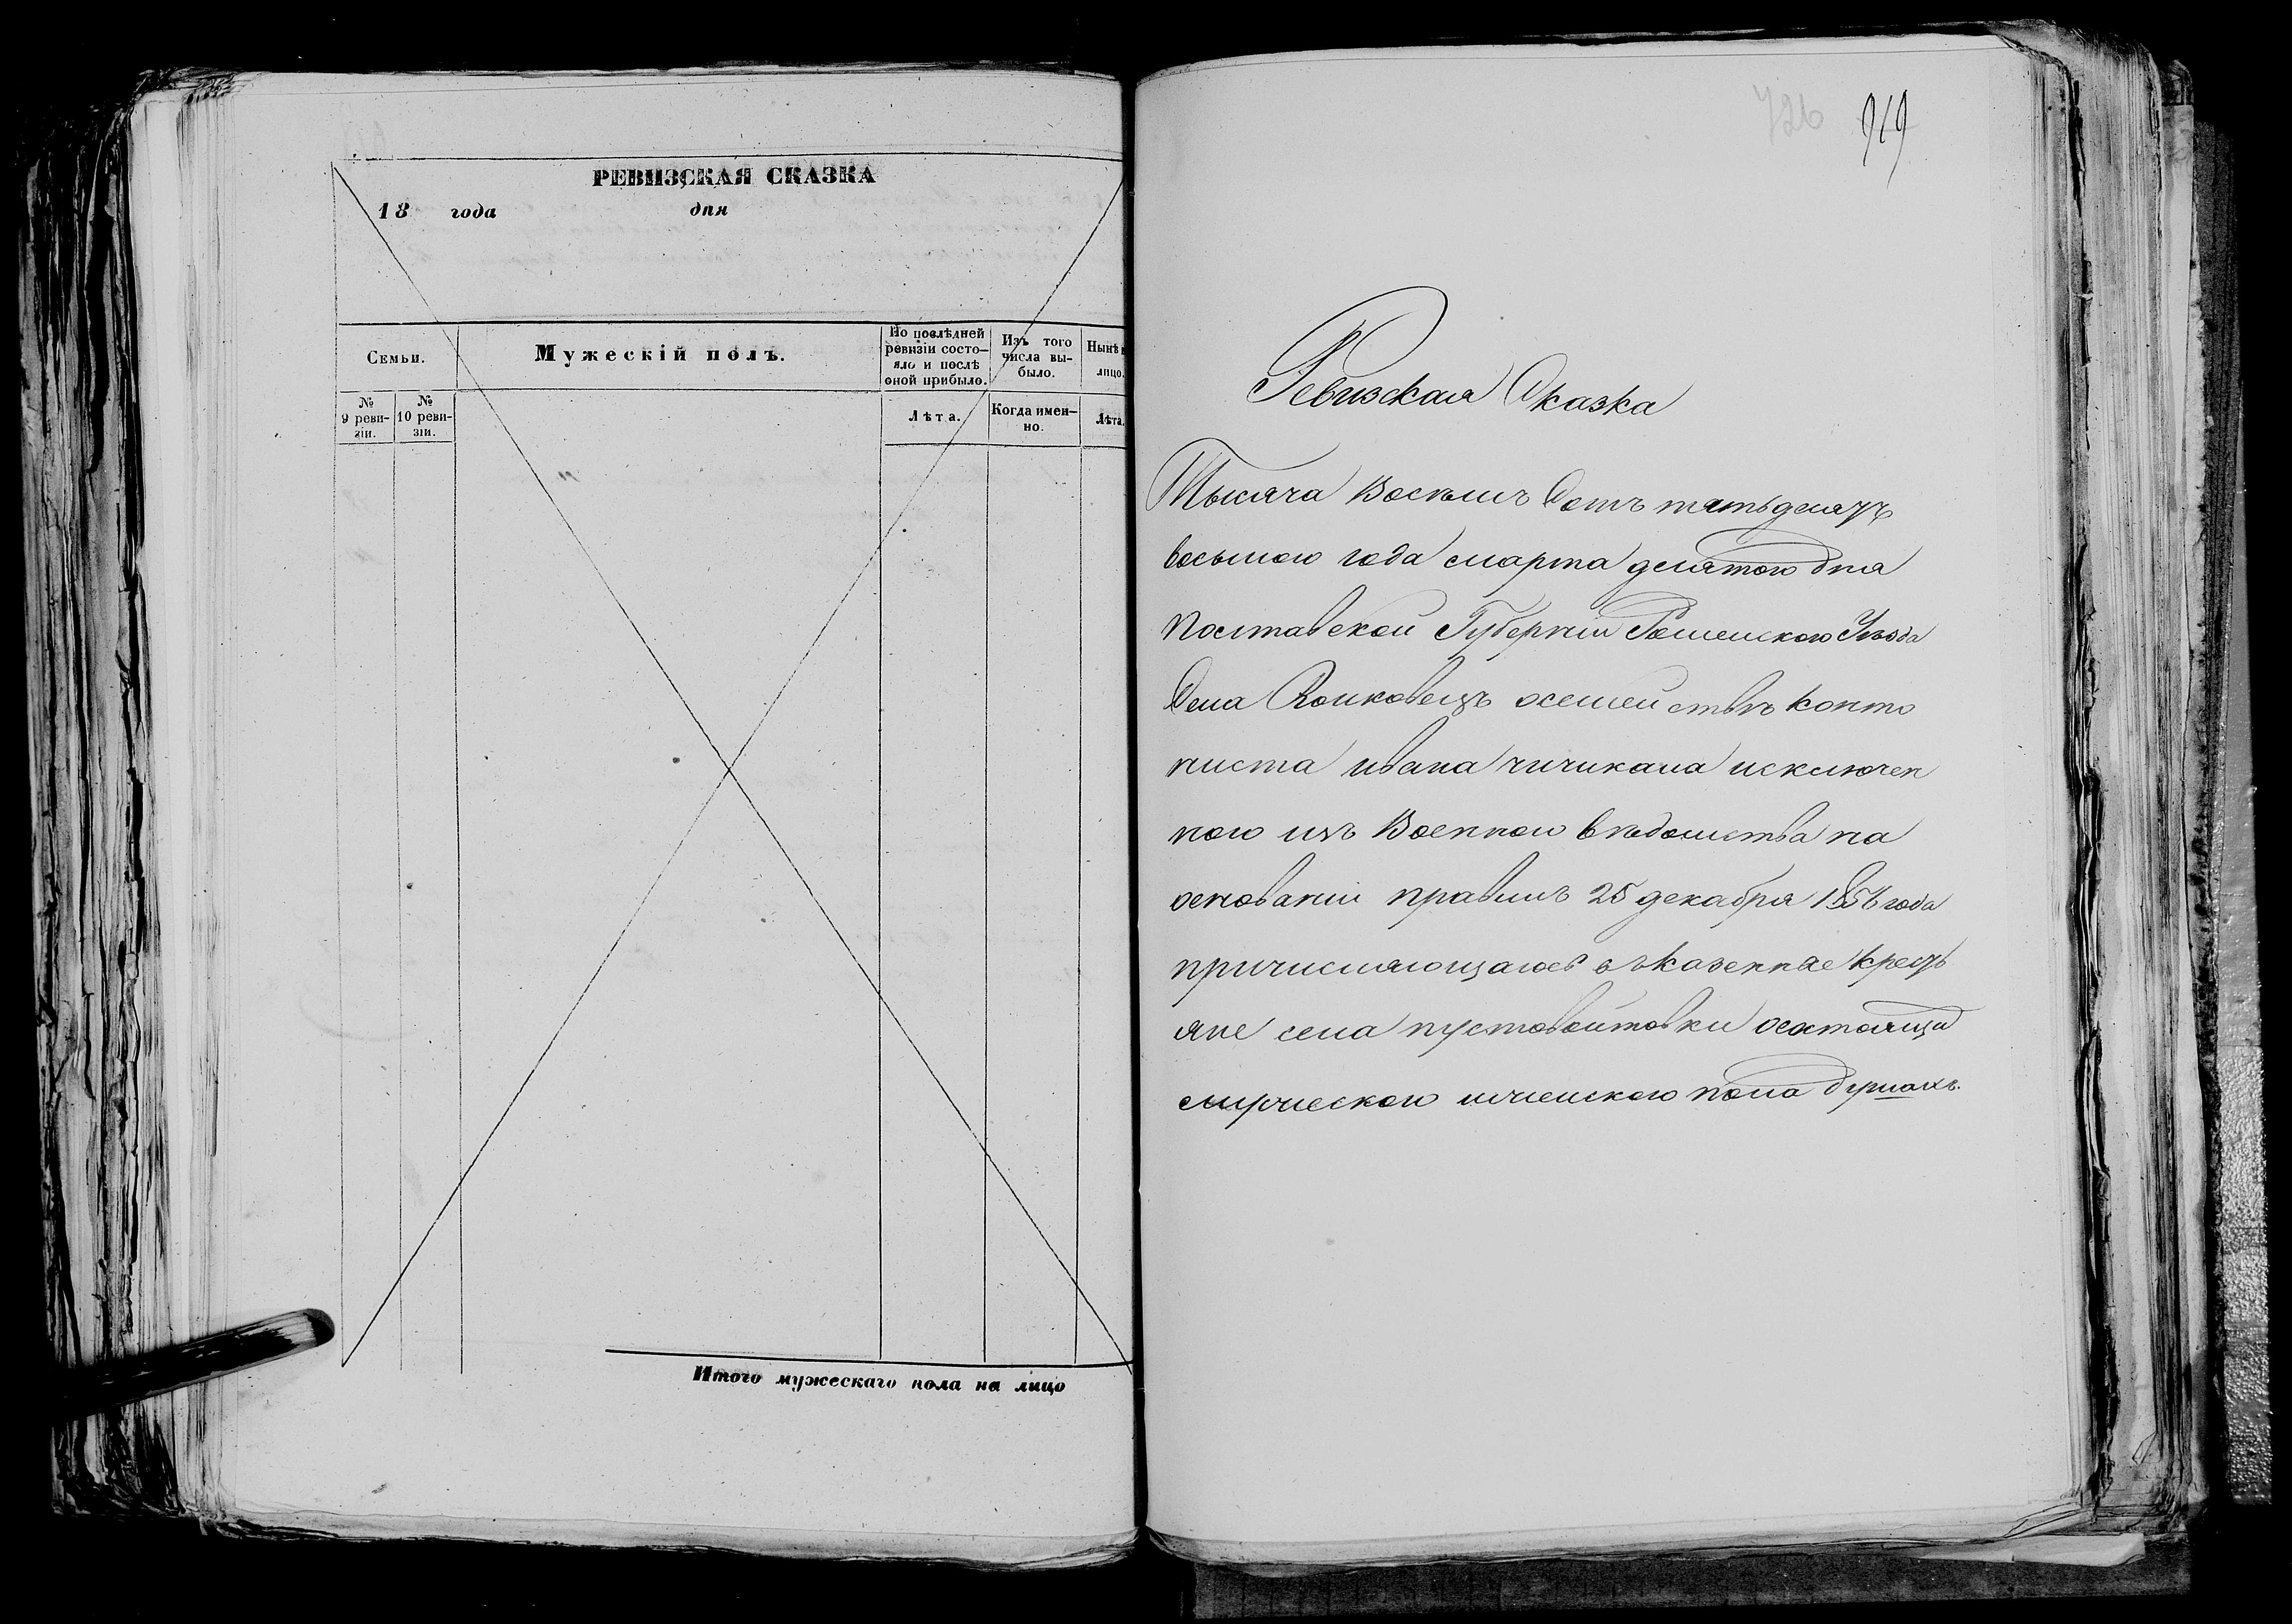 РЕВИЗСКАЯ СКАЗКА
18 года дня
Семьи.
Мужескій полъ.
По послѣдней ревизіи состо-яло и послѣ оной прибыло.
Изъ того числа вы-было.
Нынѣ
лицо.
№ 9 реви-зіи.
№ 10 реви-зіи.
Лѣта.
Когда имен-но.
Лѣта.
Итого мужескаго пола на лицо
726 919
Ревизская Сказка
Тысяча Восемь Сотъ пятьдесятъ
восьмого года марта девятого дня
Полтавской Губернии Роменского Уѣзда
Села осемействѣ канто
ниста ивана чичикала исключен
ного изъ Военного вѣдомства на
основании правилъ 25 декабря 1856 года
причисляющагося вказенные Крест
яне села пустовойтовки осостоящи
смужеского иженского пола душахъ.